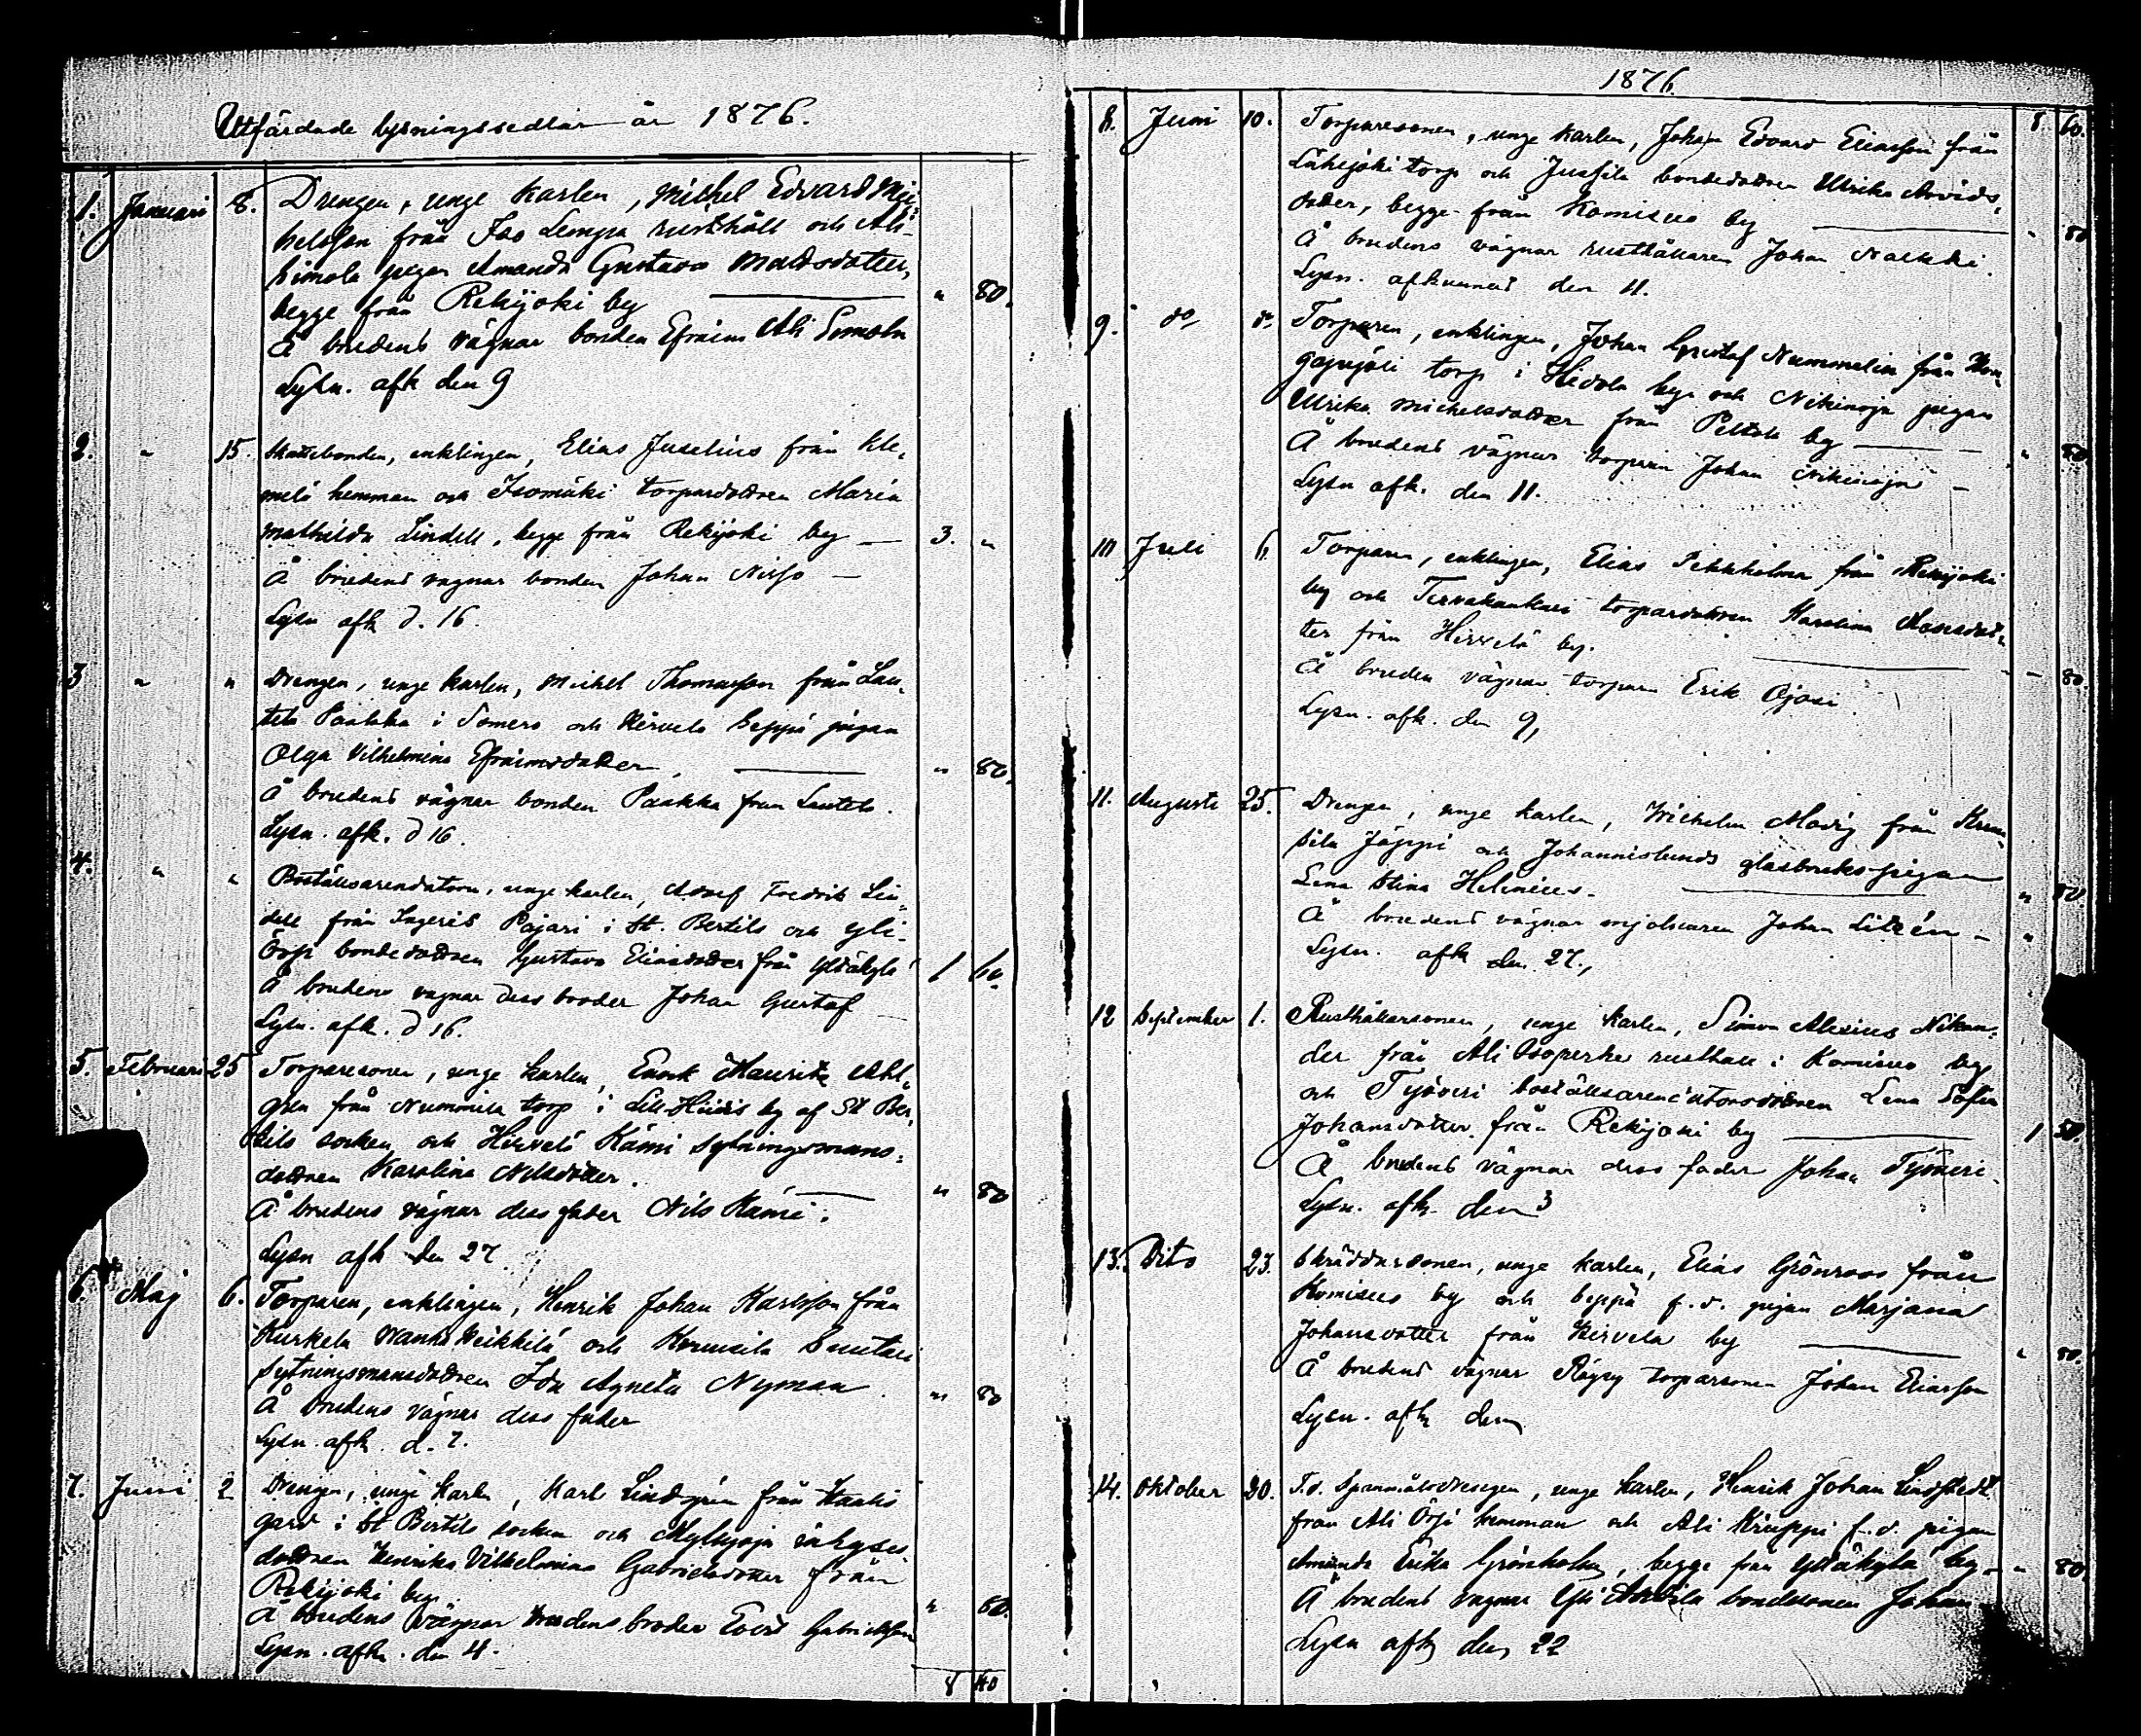 Utfärdade lysningssedlar år 1876.
1. Januari 8. Drengen, unge karlen, Michel Edvard Mi-
helsson från Iso Lempa rusthåll och Ali-
simola pigan Amanda Gustava Matsdotter,
begge från Rekijoki by — " 80.
Å brudens vägnar bonden Efraim Ali Simola
Lysn. afk den 9
2. " 15. Skattebonden, enklingen, Elias Juselius från Kle-
melä hemman och Isomäki torpardottren Maria
Mathilda Lindell, begge från Rekijoki by — 3. "
Å brudens vägnar bonden Johan —
Lysn afk d. 16.
3 " " Drengen, unge karlen, Michel Thomasson från Lau-
tela Paakka i Somero och Hirvelä Seppä pigan
Olga Vilhelmina Efraimsdotter. — " 80.
Å brudens vägnar bonden Paakka från Lautela.
Lysn. afk. d 16.
4. " " Boställsarendatorn, unge karlen, Adolf Fredrik Lin-
dell från Ingeris Pajari i St. Bertils och Yli-
Örji bondedottren Gustava Eliasdotter från Yltäkylä 1 60
Å brudens vägnar dess broder Johan Gustaf —
Lysn. afk. d 16.
5. Februari 25 Torparesonen, unge karlen, Enok Maurits Ahl-
gren från Nummila torp i Lill-Hiisis by af St Ber-
tils socken och Hirvelä Kämi sytningsmans-
dottren Karolina Nilsdotter. — " 80
Å brudens vägnar dess fader Nils Kämi.
Lysn afk den 27
6. Maj 6. Torparen, enklingen, Henrik Johan Karlsson från
Kurkela Wanha Heikkilä och Kruusila Suutari
sytningsmansdottren Ida Agneta Nyman. " 80
Å brudens vägnar dess fader
Lysn. afk. d. 7.
7. Juni 2 Drengen, unge karlen, Karl Lindgren från
gård i St Bertils socken och Myllyoja inhyses-
dottren Henrika Vilhelmina Gabrielsdotter från
Rekijoki by. " 60.
Å brudens vägnar brudens broder Gabrielsson
Lysn. afk. den 4.
8 40
1876.
8. Juni 10. Torparesonen, unge karlen, Johan Edvard Eliasson från 8. 60.
Lähejoki torp och Jussila bondedottren Ulrika Arvids-
dotter, begge från Komisuo by — " 80
Å brudens vägnar rusthållaren Johan
Lysn. afkunnad den 11.
9. do, do Torparen, enklingen, Johan Gustaf Nummelin från
torp i by och Nikinoja pigan
Ulrika Michelsdotter från Peltola by — " 80
Å brudens vägnar torparen Johan Nikinoja —
Lysn afk. den 11.
10 Juli 6. Torparen, enklingen, Elias från Rekijoki
by och Tervakankare torpardottren Karolina Monsdot-
ter från Hirvelä by.
— " 80.
Å bruden vägnar torparen Erik Ojasi.
Lysn. afk. den 9,
11. Augusti 25. Drengen, unge karlen, Wilhelm Malvig från Kruu-
sila Jäppi och Johannislunds glasbruks pigan
Lena Stina Helenius. — " 80
Å brudens vägnar mjölnaren Johan Liten — "
Lysn. afk den 27.,
12 September 1. Rusthållarsonen, unge karlen, Simon Alexius Nikan-
der från Ali Isoperhe rusthåll i Komisuo by
och Tyüveri boställsarendatorsdottren Lena Sofia
Johansdotter från Rekijoki by — 1 50.
Å brudens vägnar dess fader Johan Tyüveri.
Lysn. afk. den 3
13. Dito 23. Skräddarsonen, unge karlen, Elias Grönroos från
Komisuo by och Seppä f.d. pigan Marjana
Johansdotter från Hirvelä by — " 80.
Å brudens vägnar torparsonen Johan Eliasson
Lysn. afk den
14. Oktober 20. F.d. Spannmålsdrengen, unge karlen, Henrik Johan Lindstedt
från Ali Örji hemman och Ali Kruppi f.d. pigan
Amanda Erika Grönholm, begge från Yltäkylä by — " 80
Å brudens vägnar Yli bondesonen Johan —
Lysn afk den 22